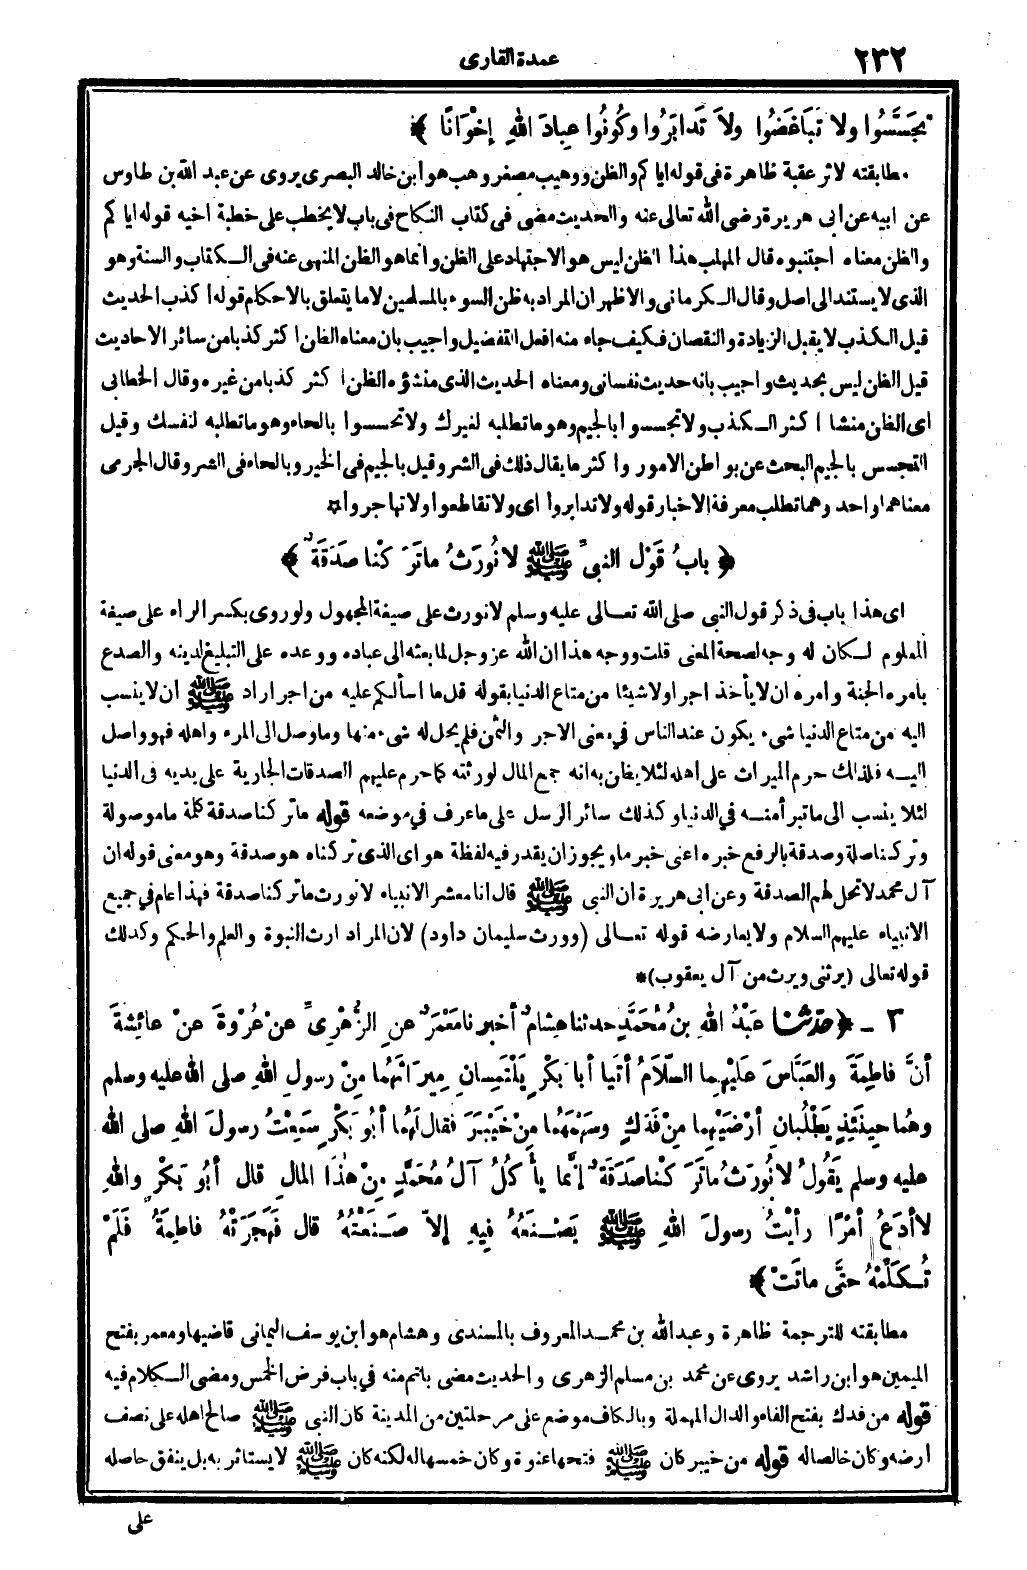 ٢٣٢
عمدة القارى
تجَسَّسُوا ولا تَباغَضُوا ولاَ تَدابَرُوا وكُونُوا عِبادَ اللهِ إخْوَانًا ﴾
مطابقته لاثر عقبة ظاهرة فى قوله اياكم والظن ووهيب مصغر وهب هو ابن خالد البصرى يروى عن عبد الله بن طاوس
عن ابيه عن ابى هريرة رضى الله تعالى عنه والحديث مضى فى كتاب النكاح فى باب لا يخطب على خطبة اخيه قوله اياكم
والظن معناه اجتنبوه قال المهلب هذا الظن ليس هو الاجتهاد على الظن وانما هو الظن المنهى عنه فى الكتاب والسنة وهو
الذى لا يستند الى اصل وقال الكرمانى والاظهر ان المراد به ظن السوء بالمسلمين لا ما يتعلق بالاحكام قوله اكذب الحديث
قيل الكذب لا يقبل الزيادة والنقصان فكيف جاء منه افعل التفضيل واجيب بان معناه الظن اكثر كذبا من سائر الاحاديث
قيل الظن ليس بحديث واجيب بانه حديث نفسانى ومعناه الحديث الذى منشؤه الظن اكثر كذبا من غيره وقال الخطابى
اى الظن منشا اكثر الكذب ولا تجسسوا بالجيم وهو ما تطلبه لغيرك ولا تحسسوا بالحاء وهو ما تطلبه لنفسك وقيل
التجسس بالجيم البحث عن بواطن الامور واكثر ما يقال ذلك فى الشر وقيل بالجيم فى الخير وبالحاء فى الشر وقال الجرمى
معناهما واحد وهما تطلب معرفة الاخبار قوله ولا تدابروا اى ولا تقاطعوا ولا تهاجروا ☆
﴿ بابُ قَوْلِ النبىِّ ﷺ لا نُورَثُ ما تَرَكْنا صَدَقَةٌ ﴾
اى هذا باب فى ذكر قول النبى صلى الله تعالى عليه وسلم لا نورث على صيغة المجهول ولو روى بكسر الراء على صيغة
المعلوم لكان له وجه لصحة المعنى قلت ووجه هذا ان الله عز وجل لما بعثه الى عباده ووعده على التبليغ لدينه والصدع
بامره الجنة وامره ان لا يأخذ اجرا ولا شيئا من متاع الدنيا بقوله قل ما اسألكم عليه من اجر اراد ﷺ ان لا ينسب
اليه من متاع الدنيا شىء يكون عند الناس في معنى الاجر والثمن فلم يحل له شىء منها وما وصل الى المرء واهله فهو واصل
اليه فلذلك حرم الميراث على اهله لئلا يظن به انه جمع المال لورثته كما حرم عليهم الصدقات الجارية على يديه فى الدنيا
لئلا ينسب الى ما تبرأ منه في الدنيا وكذلك سائر الرسل على ما عرف في موضعه قوله ما تركنا صدقة كلمة ما موصولة
وتركنا صلة وصدقة بالرفع خبره اعنى خبر ما ويجوز ان يقدر فيه لفظة هو اى الذى تركناه هو صدقة وهو معنى قوله ان
آل محمد لا تحل لهم الصدقة وعن ابى هريرة ان النبى ﷺ قال انا معشر الانبياء لا نورث ما تركنا صدقة فهذا عام في جميع
الانبياء عليهم السلام ولا يعارضه قوله تعالى (وورث سليمان داود) لان المراد ارث النبوة والعلم والحكم وكذلك
قوله تعالى (يرثنى ويرث من آل يعقوب)*
٣ - ﴿ حدّثنا عَبْدُ اللهِ بنُ مُحَمَّدٍ حدثنا هِشامٌ أخبرنا مَعْمَرٌ عنِ الزُّهْرِىِّ عنْ عُرْوةَ عنْ عائِشةَ
أنَّ فاطِمَةَ والعَبَّاسَ عَلَيْهِما السلاَمُ أتَيا أبا بَكْرٍ يَلْتَمِسانِ مِيرَاثَهُما مِنْ رسولِ اللهِ صلى الله عليه وسلم
وهُما حِينَئِذٍ يَطْلُبانِ أرْضَيْهِما مِنْ فَدَكٍ وسَهْمَهُما مِنْ خَيْبَرَ فقال لَهُما أبُو بَكْرٍ سَمِعْتُ رسولَ اللهِ صلى الله
عليه وسلم يَقُولُ لا نُورَثُ ما تَرَكْنا صَدَقَةٌ إنَّما يأْكُلُ آلُ مُحَمَّدٍ مِنْ هٰذَا المالِ قال أبُو بَكْرٍ واللهِ
لا أدَعُ أمْرًا رأيْتُ رسولَ اللهِ ﷺ يَصْنَعُهُ فِيهِ إلاّ صَنَعْتُهُ قال فَهَجَرَتْهُ فاطِمَةُ فَلَمْ
تُكَلِّمْهُ حتَّى ماتَتْ ﴾
مطابقته للترجمة ظاهرة وعبد الله بن محمد المعروف بالمسندى وهشام هو ابن يوسف اليمانى قاضيها ومعمر بفتح
الميمين هو ابن راشد يروى عن محمد بن مسلم الزهرى والحديث مضى باتم منه في باب فرض الخمس ومضى الكلام فيه
قوله من فدك بفتح الفاء والدال المهملة وبالكاف موضع على مرحلتين من المدينة كان النبى ﷺ صالح اهله على نصف
ارضه وكان خالصا له قوله من خيبر كان ﷺ فتحها عنوة وكان خمسها له لكنه كان ﷺ لا يستاثر به بل ينفق حاصله
على